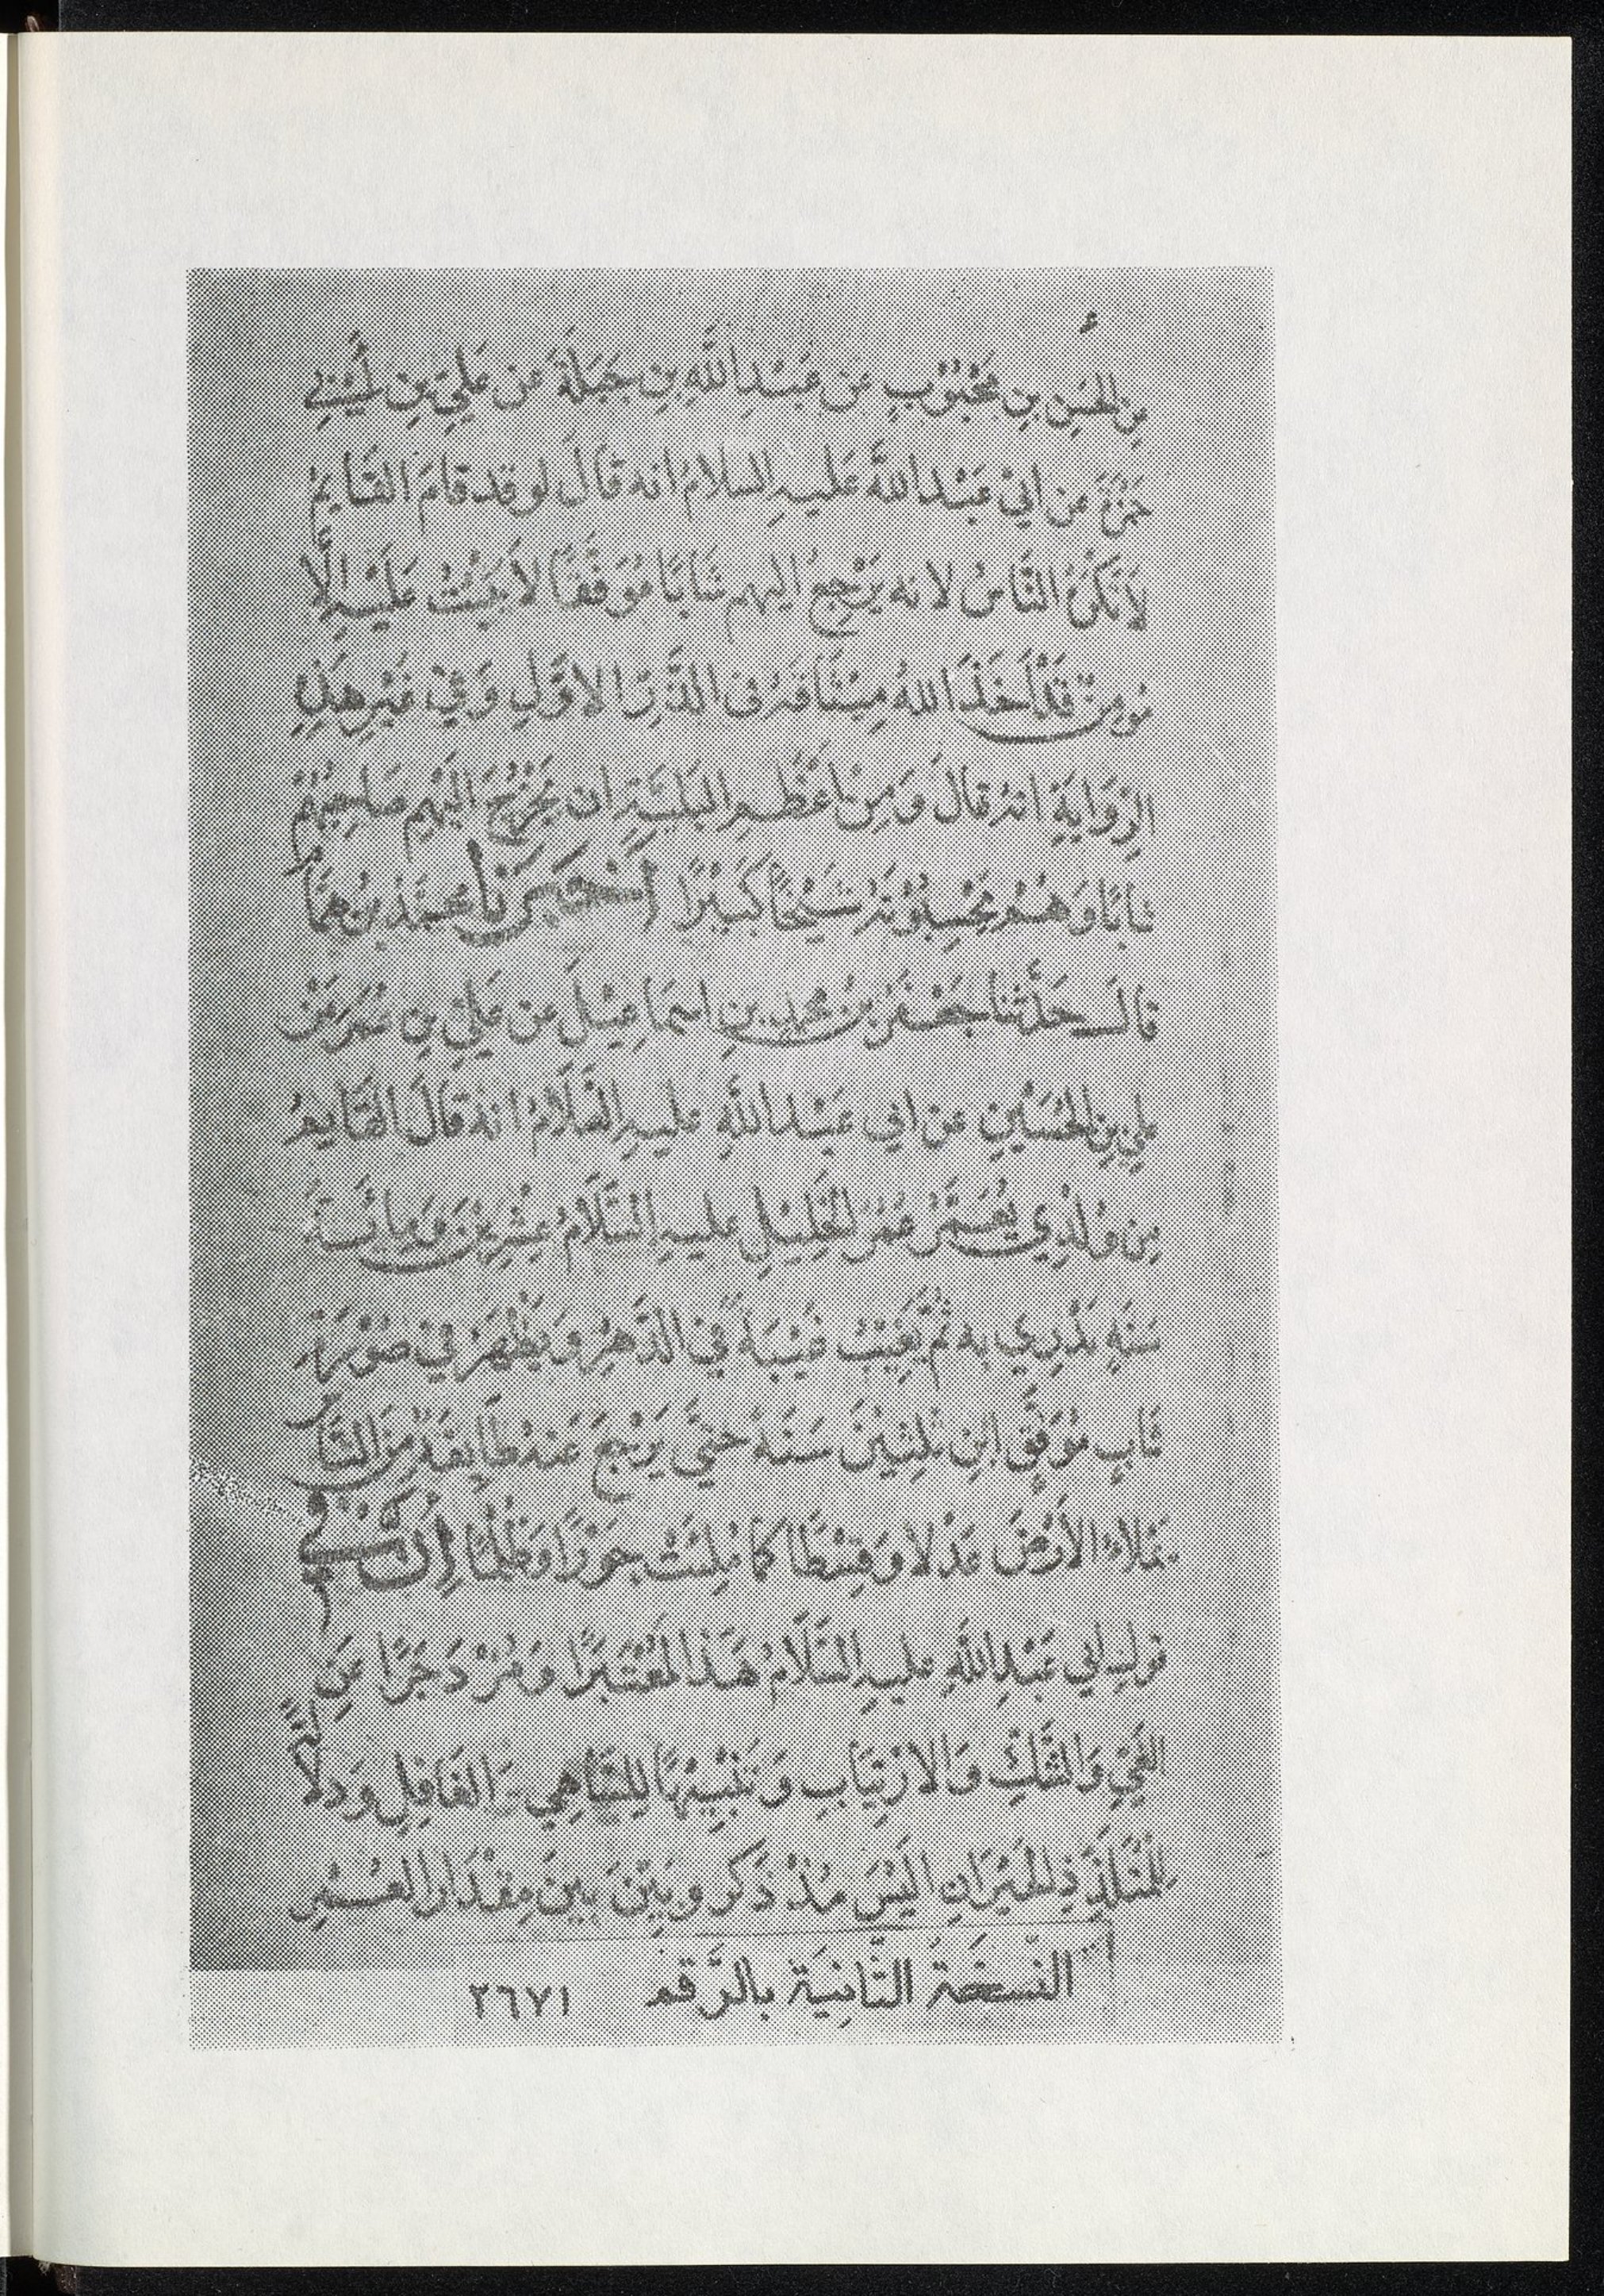 عن الحسن بن محبوب عن عبد الله بن جبلة عن علي بن أبي
حمزة عن ابي عبد الله عليه السلام انه قال لو قد قام القايم
لأنكره الناس لانه يرجع اليهم شابا موفقا لا يثبت عليه إلا
مؤمن قد أخذ الله ميثاقه في الذر الاول وفي غير هذه
الرواية انه قال ومن أعظم البلية ان يخرج اليهم صاحبهم
شابا وهم يحسبونه شيخا كبيرا أخبرنا محمد بن همام
قال حدثنا جعفر بن محمد بن اسماعيل عن علي بن عمر عن
علي بن الحسين عن ابي عبد الله عليه السلام انه قال القايم
من ولدي يعمر عمر الخليل عليه السلام عشرين ومائة
سنة يدري به ثم يغيب غيبة في الدهر ويظهر في صورة
شاب موفق ابن ثلثين سنة حتى يرجع عنه طايفة من الناس
يملاء الأرض عدلا وقسطا كما ملئت جورا وظلما إن في
قول ابي عبد الله عليه السلام هذا لمعتبرا ومزدجرا عن
العمى والشك والارتياب وتنبيها للساهي الغافل ودلالة
للمتلدد الحيران اليس مذ ذكر وبين بين مقدار العمر
النسخة الثانية بالرقم ٢٦٧١